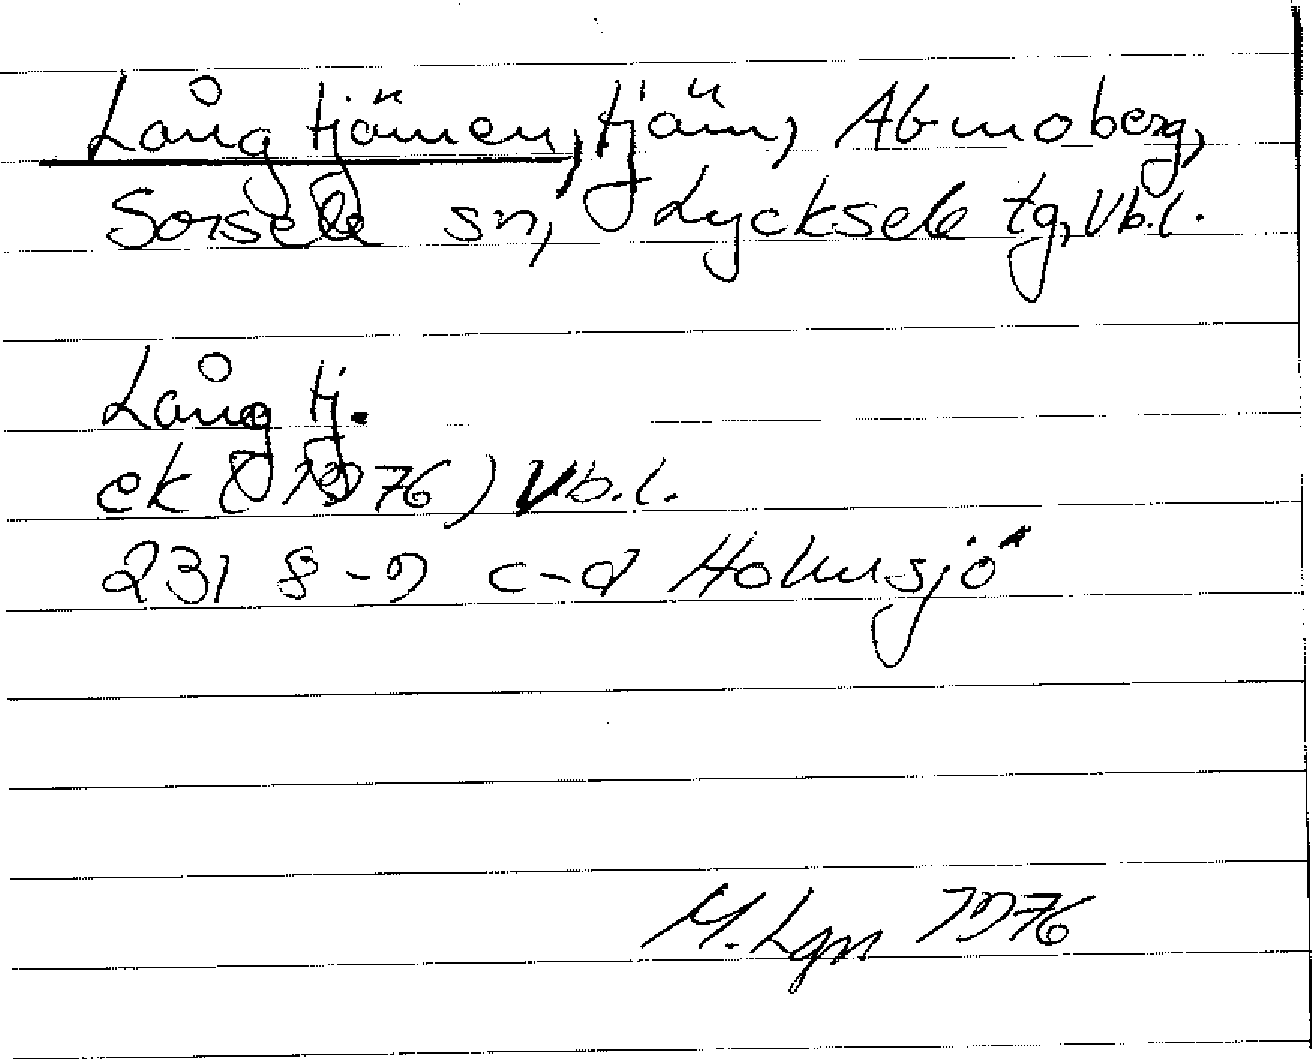 Långtjärnen, tjärn, Abmoberg,
Sorsele sn, Lycksele tg, Vb.l.
Långtj.
ek (1976) Vb.l.
231 8-9 c-d Holmsjö
M. Lgn 1976